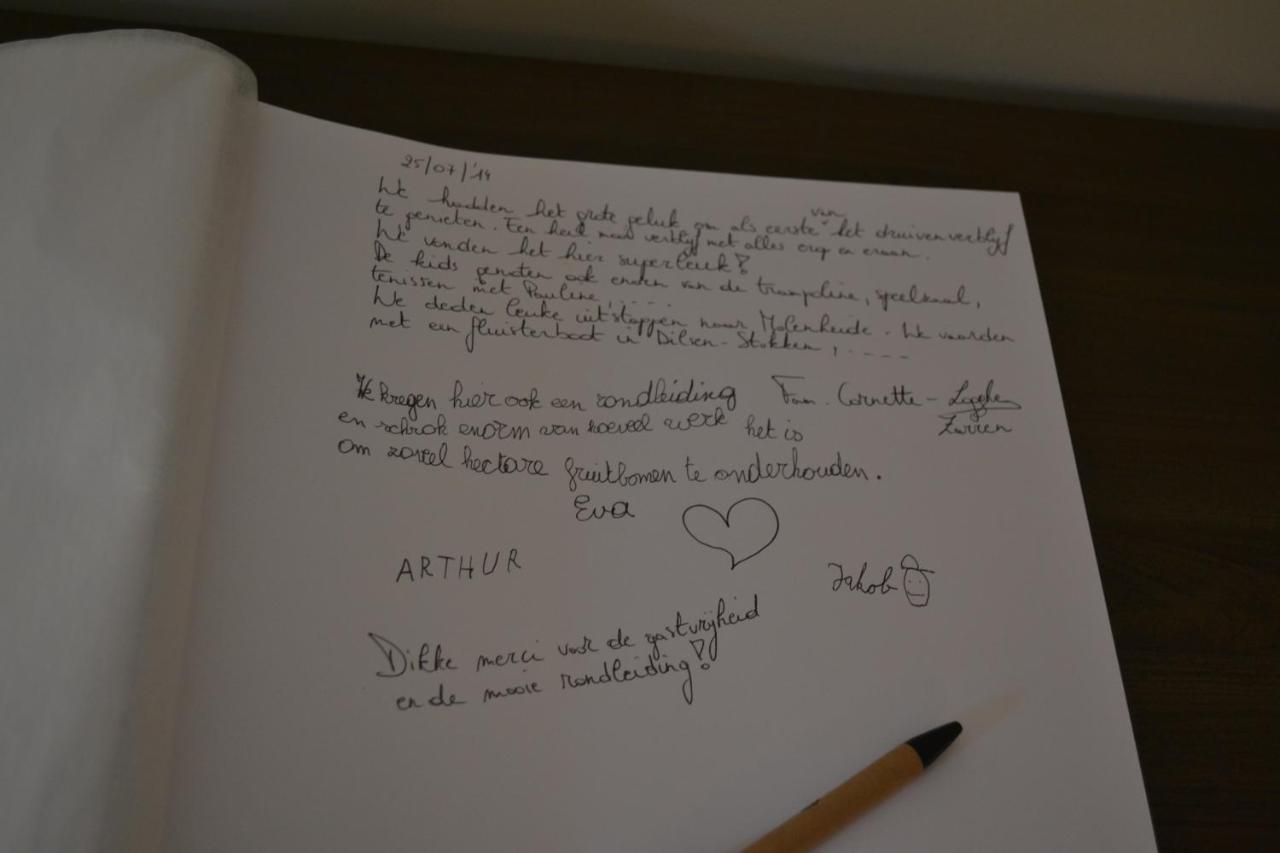 25/07/'14
We hadden het grote geluk om als eerste van het druivenverblijf
te genieten. Een heel mooi verblijf met alles erop en eraan.
We vonden het hier superleuk!
De kids genoten ook enorm van de trampoline, speelzaal,
tenissen met Pauline, .....
We deden leuke uitstappen naar Molenheide. We vaarden
met een fluisterboot in Dilsen-Stokken, .....
Fam. Cornette -
Zarren
Ik kregen hier ook een rondleiding
en schrok enorm van hoeveel werk het is
om zoveel hectare fruitbomen te onderhouden.
Eva
ARTHUR
Jakob
Dikke merci voor de gastvrijheid
en de mooie rondleiding!